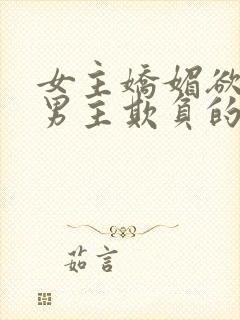 女主嬌媚欲
男主欺負的
茹言